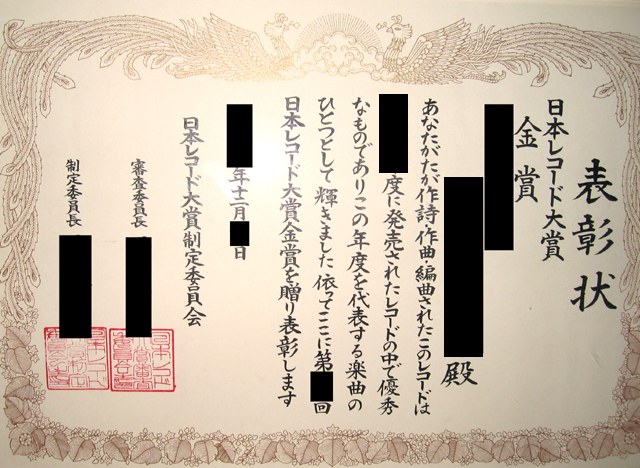 表彰状
日本レコード大賞
金賞
殿
あなたがたが作詩・作曲・編曲されたこのレコードは
度に発売されたレコードの中で優秀
なものでありこの年度を代表する楽曲の
ひとつとして輝きました依ってここに第
回
日本レコード大賞金賞を贈り表彰します
年十二月
日
日本レコード大賞制定委員会
審査委員長
制定委員長